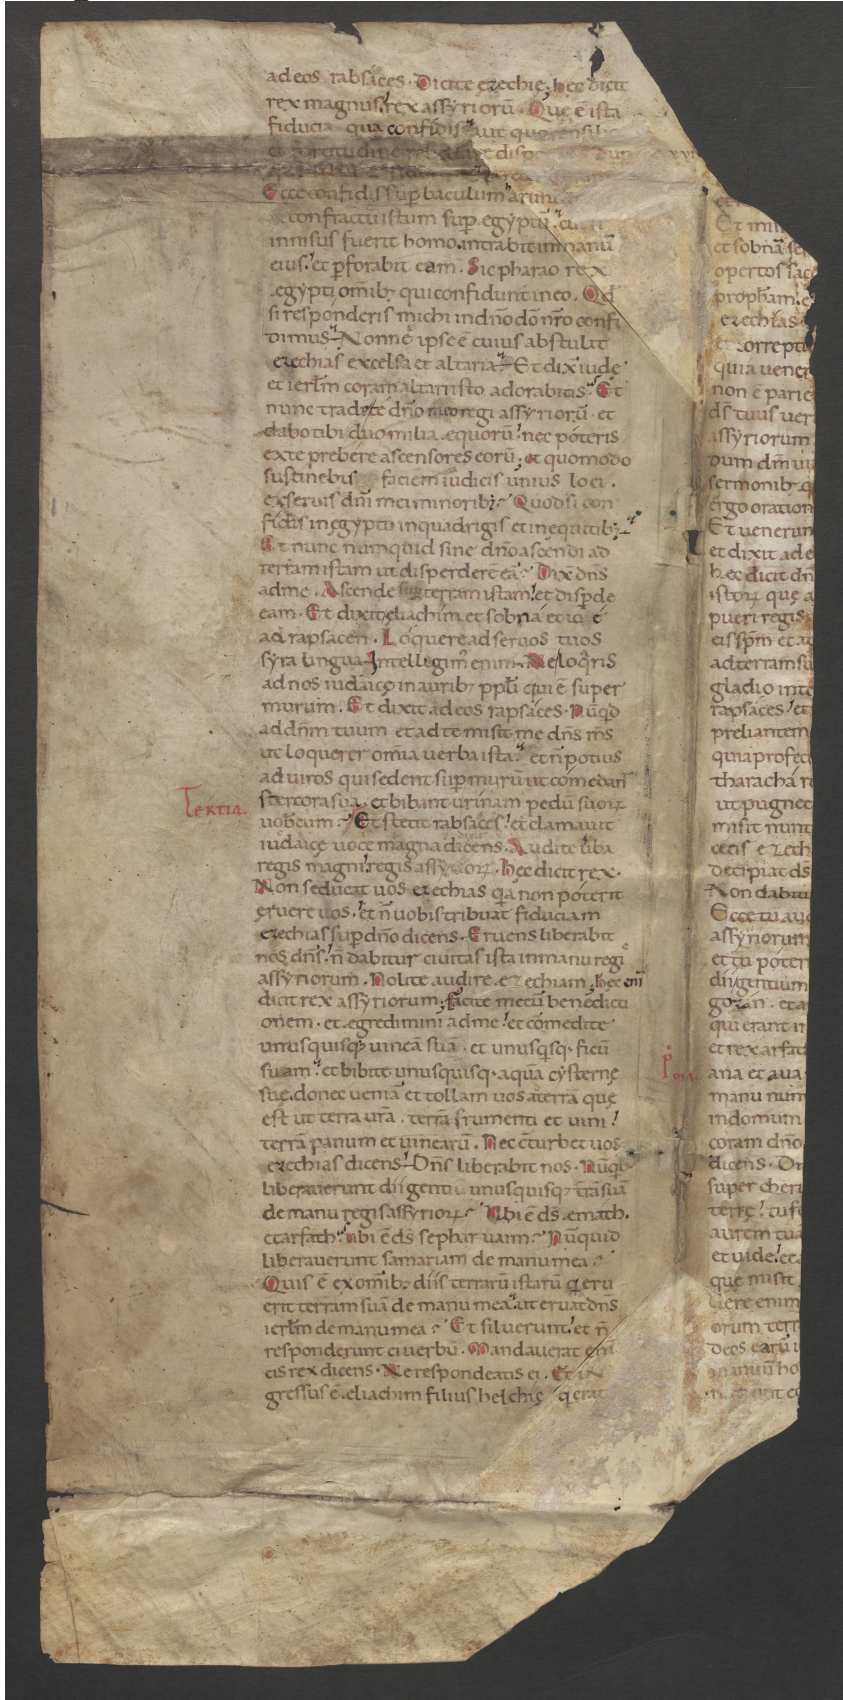 ad eos rabsáces. Dicite ezechię; hęc dicit
rex magnus rex assyriorū. Quę ē ista
fiducia qua confidis aut quo consilio
Ecce confidis sup baculum arun
confractū istum sup egyptū. cui si
innisus fuerit homo. intrabit in manū
eius. et pforabit eam. Sic pharao rex
egypti omīb; qui confidunt in eo. Qd
si responderis michi in dno dō nro confi
dimus. Nonne ipse ē cuius abstulit
ezechias excelsa et altaria. Et dix iudę
et ierlm coram altari isto adorabitis. Et
nunc tradete dno meo regi assyriorū. et
dabo tibi duo milia equorū. nec póteris
ex te prebere ascensores eorū; et quomodo
sustinebis faciem iudicis unius loci.
ex seruis dni mei minorib;. Quod si con
fidis in egypto in quadrigis et in equitib;
Et nunc numquid sine dno ascendi ad
terram istam ut disperderē eā. Dix dns
ad me. Ascende sup terram istam. et dispde
eam. Et dixit eliachim. et sobna et
ad rapsacen. Loquere ad seruos tuos
syra lingua. Intellegim enim. Ne loqris
ad nos iudáicę in aurib; ppli qui ē super
murum. Et dixit ad eos rapsáces. Nūqd
ad dnm tuum et ad te misit me dns ms
ut loquerer omia uerba ista. et n potius
ad uiros qui sedent sup murū ut cómedant
stercora sua. et bibant urinam pedū suorꝝ
Tertia.
uobcum. Et stetit rabsáces. et clamauit
iudáicę uoce magna dicens. Audite uba
regis magni. regis assyriorꝝ. hęc dicit rex.
Non seducat uos ezechias qa non póterit
ęruere uos. et n uobis tribuat fiduciam
ezechias sup dno dicens. Eruens liberabit
nos dns. n dabitur ciuitas ista in manu regis
assyriorum. Nolite audire ezechiam; hęc eni
dicit rex assyriorum; facite mecū benedicti
onem. et egredimini ad me. et cómedite
unusquisq; uineā suā. et unusqsq. ficū
suam. et bibite unusquisq. aquā cysternę
suę. donec ueniā et tollam uos ad terrā quę
est ut terra ura. terrā frumenti et uini.
terrā panum et uinearū. Nec cturbet uos
ezechias dicens. Dns liberabit nos. Nūqd
liberauerunt dii gentiū unusquisq; trā suā
de manu regis assyriorꝝ. Ubi ē ds emath.
et arfath. ubi ē ds sepharuaim. Nūquid
liberauerunt samariam de manu mea.
Quis ē ex omib; diis terrarū istarū q eru
erit terram suā de manu mea. ut eruat dns
ierlm de manu mea. Et siluerunt. et n
responderunt ei uerbū. Mandauerat eni
eis rex dicens. Ne respondeatis ei. Et in
gressus ē eliachim filius helchię q erat
Et mis
et sobnā se
opertos sac
propham. e
ezechias
et correpti
quia uener
non ē parie
ds tuus uer
assyriorum
dum dm ui
sermonib; q
ergo oration
Et uenerun
et dixit ad e
hęc dicit dn
istorꝝ quę a
pueri regis
ei spm et au
ad terram su
gladio inte
rapsáces. et
preliantem
quia profec
tharachá r
ut pugnet
misit nunt
cecis ezech
decipiat ds
Non dabitu
Ecce tu aud
assyriorum
et tu póter
dii gentium
gozan. et a
qui erant in
Pma
et rex arfat
ana et aua
manu nun
in domum
coram dno
dicens. Dn
super cheru
terrę. tu fe
aurem tua
et uide. et a
quę misit
uere enim
orum terra
deos earū i
manuū ho